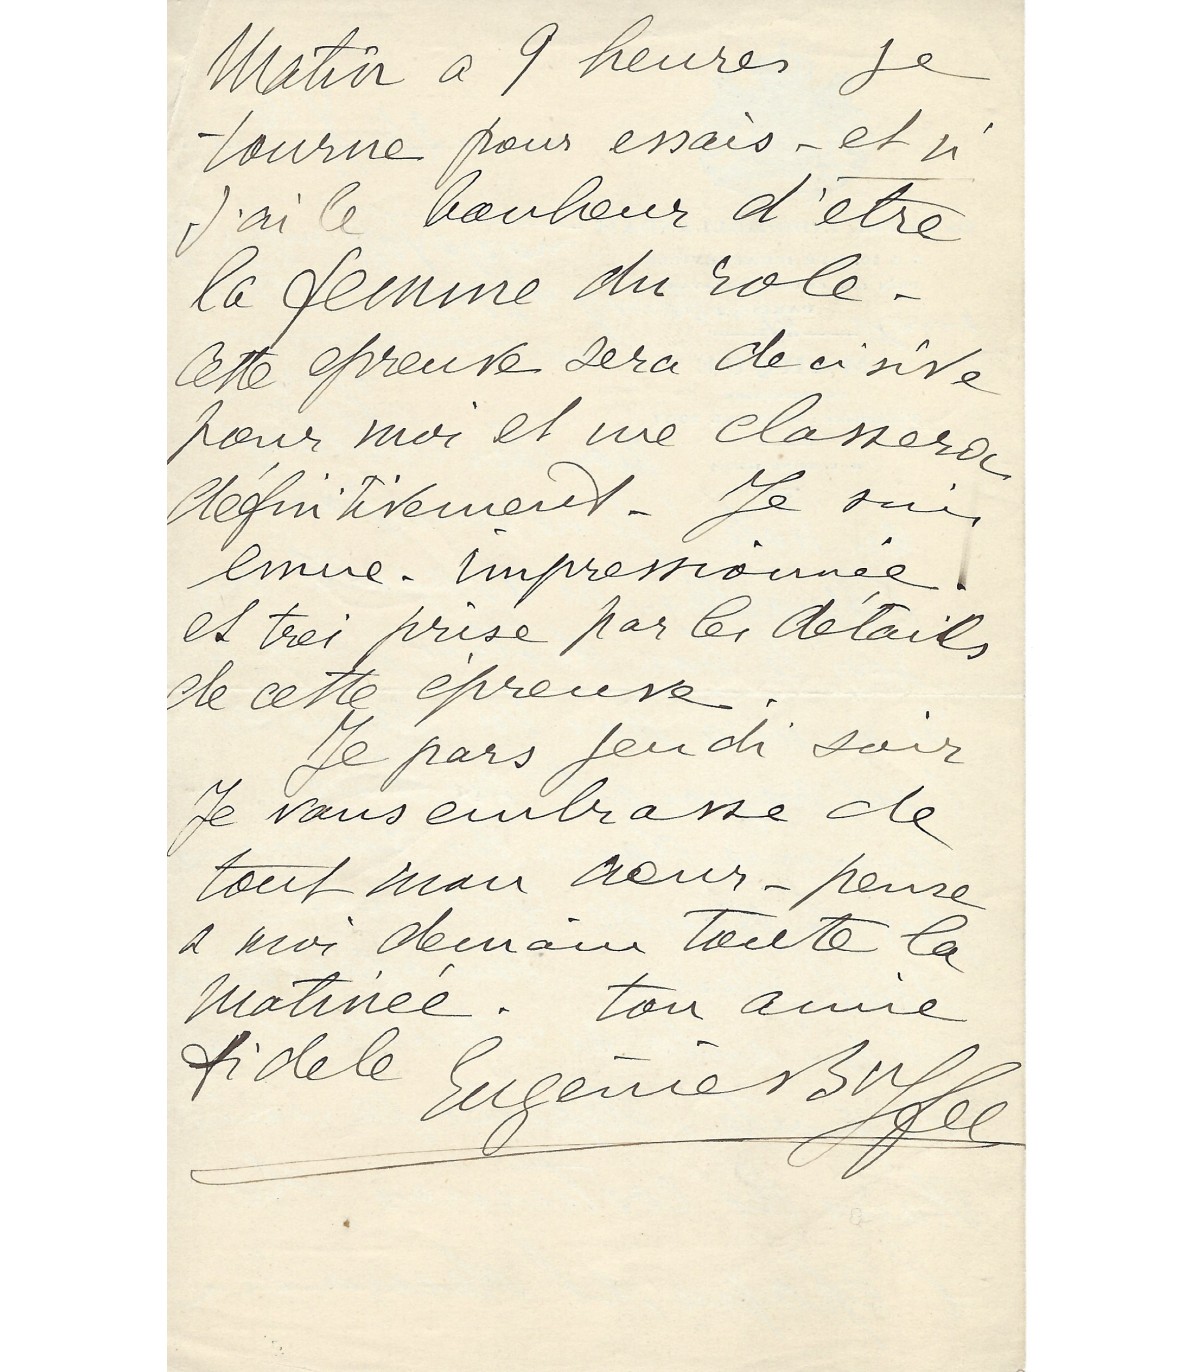 Matin a 9 heures je
tourne pour essais - et si
j'ai le bonheur d'être
la femme du role -
Cette epreuve sera decisive
pour moi et me classera
définitivement - Je suis
emue - impressionnée !
et tres prise par les détails
de cette épreuve .
Je pars jeudi soir
Je vous embrasse de
tout mon coeur - pense
a moi demain toute la
matinée . ton amie
fidele Eugénie Buffet